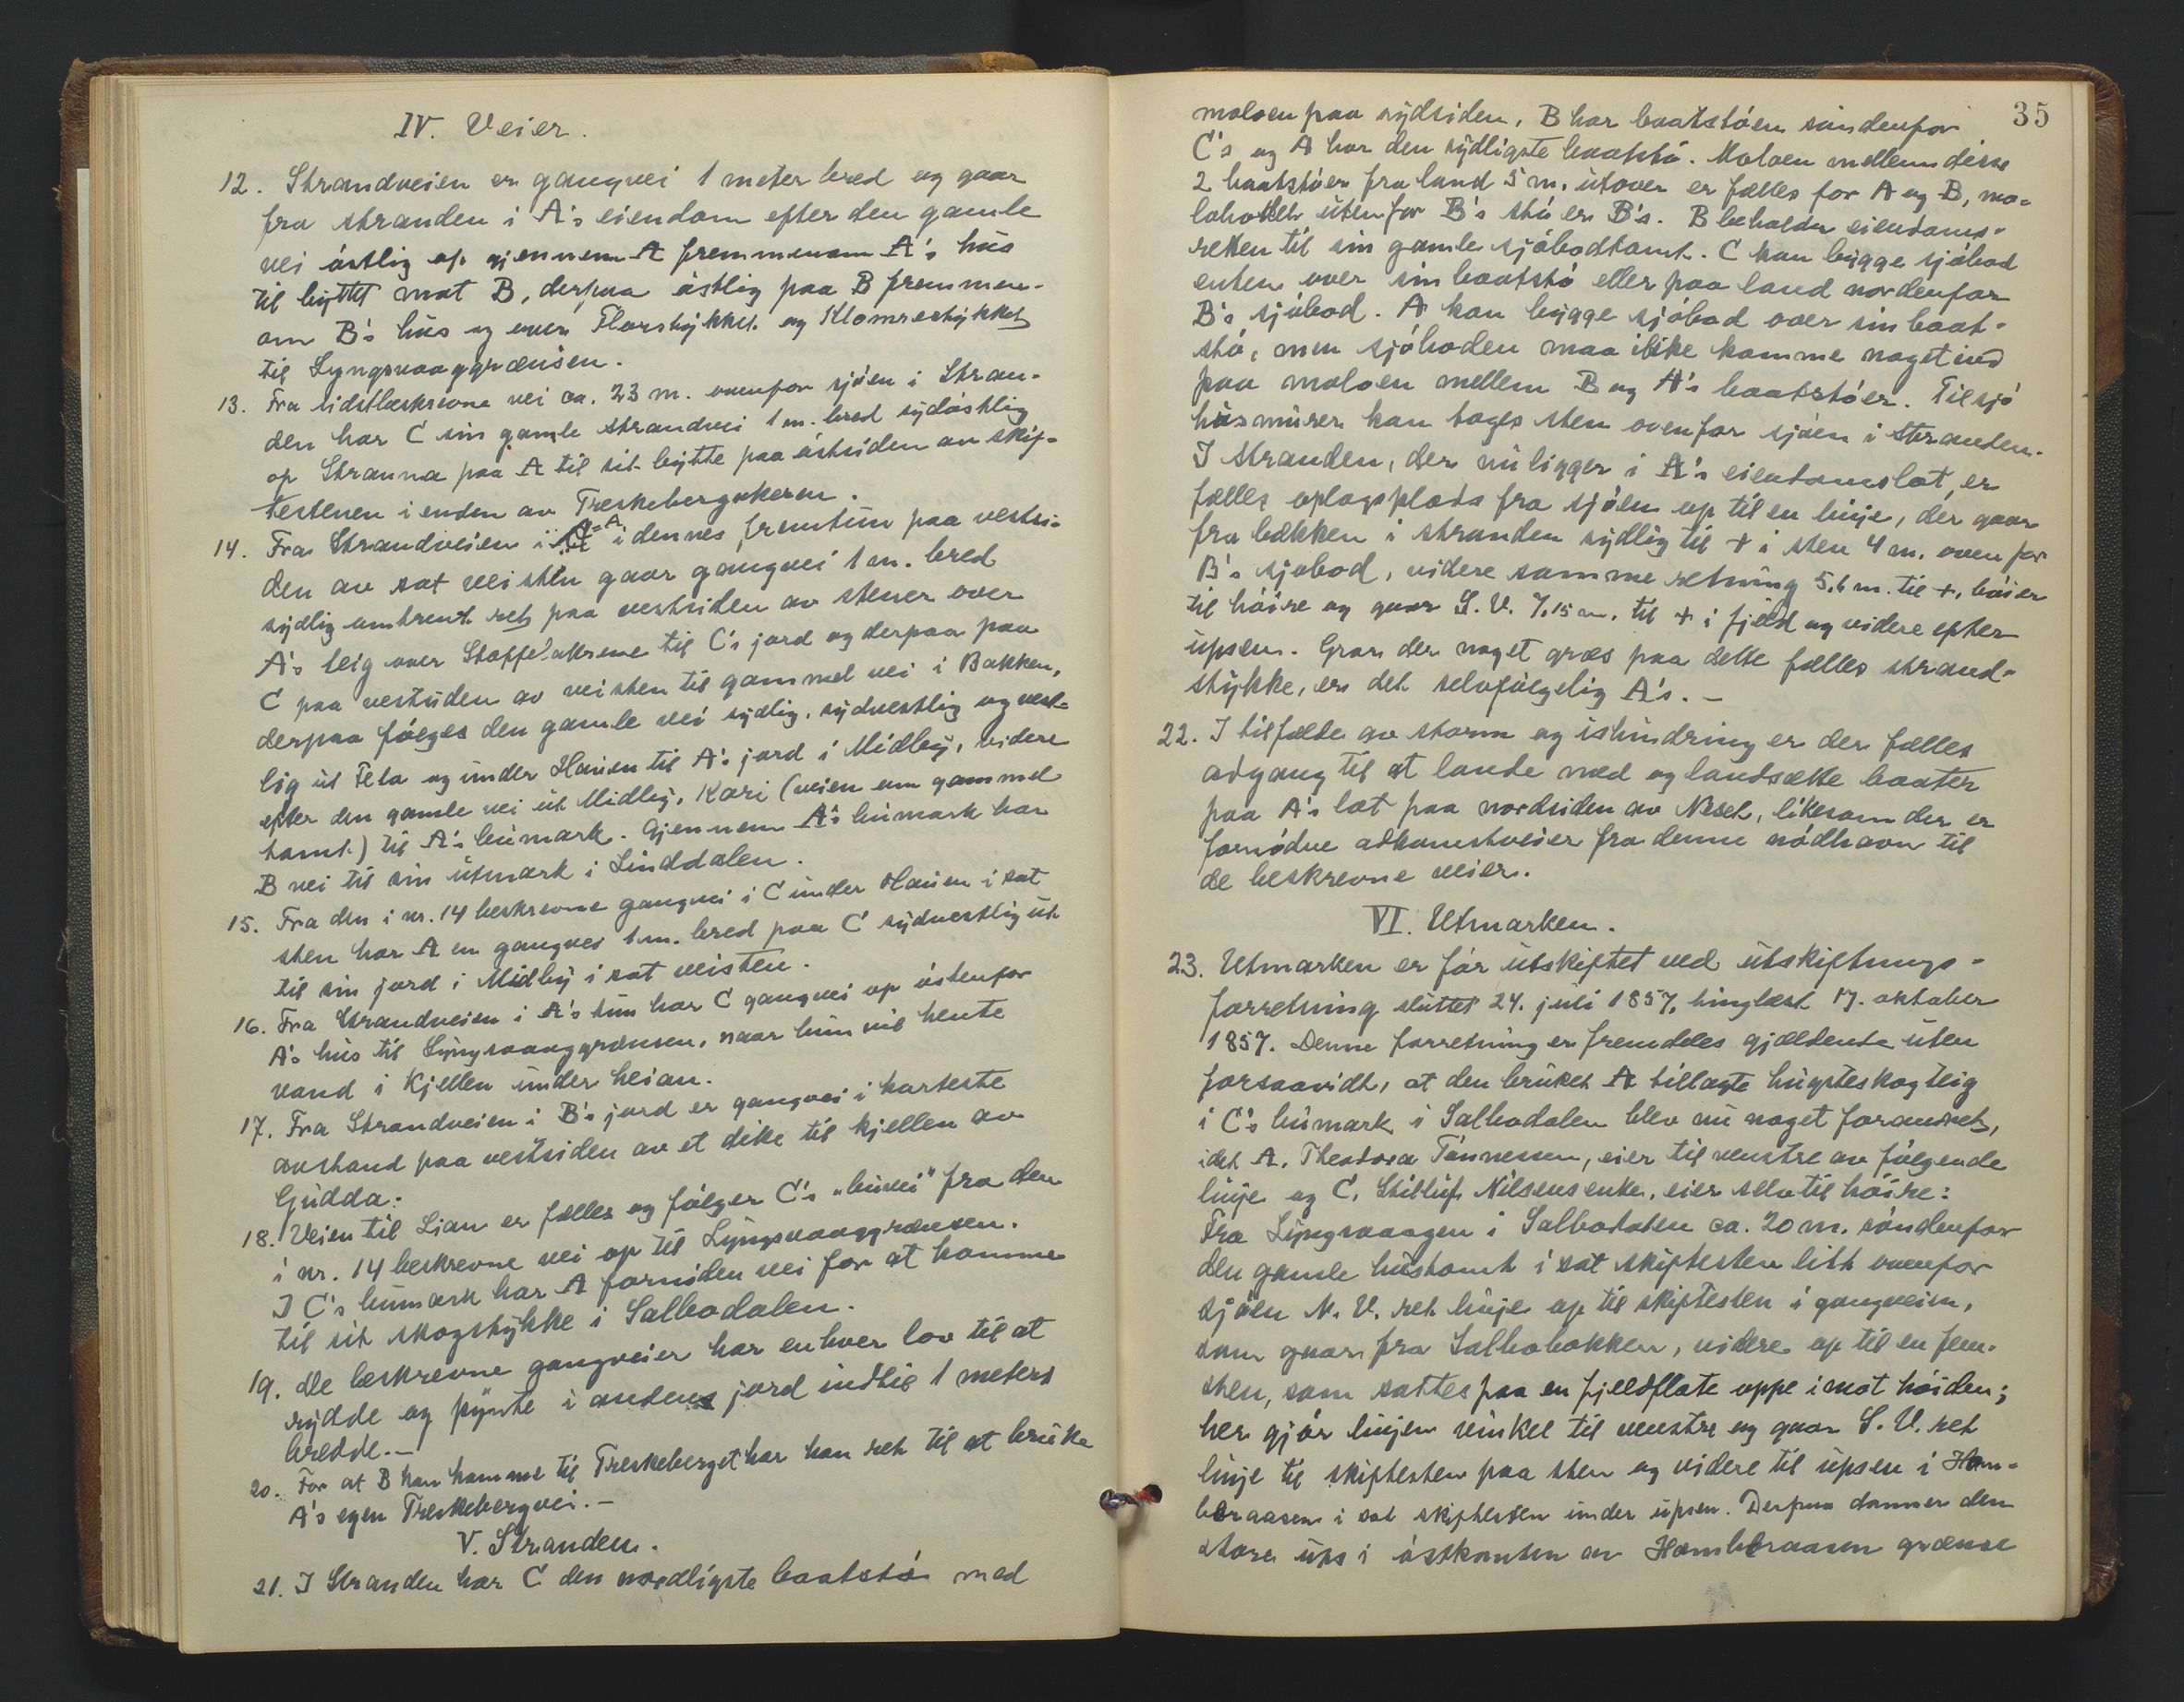 IV. Veier.
12. Strandveien er gangvei 1 meter bred og gaar
fra stranden i A's eiendom efter den gamle
vei østlig op gjennem A fremmenom A's hus
til byttet mot B, derpaa østlig paa B fremmen-
om B's hus og over Florstykket og Klomrestykket
til Lyngsvaaggrænsen.
13. Fra sidstbeskrevne vei ca. 23 m. ovenfor sjøen i Stran-
den har C sin gamle strandvei 1 m. bred sydøstlig
op Stranna paa A til sit bytte paa østsiden av skif-
testenen i enden av Treskebergakeren.
14. Fra Strandveien i A i dennes fremtun paa vestsi-
den av sat veisten gaar gangvei 1 m. bred
sydlig omtrent ret paa vestsiden av stener over
A's teig over Stoffelakrene til C's jord og derpaa paa
C paa vestsiden av veisten til gammel vei i Bakken,
derpaa følges den gamle vei sydlig, sydvestlig og vest-
lig ut Fela og under Hauen til A's jord i Midbø, videre
efter den gamle vei ut Midbø, Kari (veien om gammel
tomt) til A's bumark. Gjennem A's bumark har
B vei til sin utmark i Linddalen.
15. Fra den i nr. 14 beskrevne gangvei i C under Hauen i sat
sten har A en gangvei 1 m. bred paa C sydvestlig ut
til sin jord i Midbø i sat veisten.
16. Fra Strandveien i A's tun har C gangvei op østenfor
A's hus til Lyngsvaaggrænsen, naar hun vil hente
vand i Kjellen under heian.
17. Fra Strandveien i B's jord er gangvei i korteste
avstand paa vestsiden av et dike til kjellen av
Gudda.
18. Veien til Lian er fælles og følger C's "buvei" fra den
i nr. 14 beskrevne vei op til Lyngsvaaggrænsen.
I C's bumark har A fornøden vei for at komme
til sit skogstykke i Salbodalen.
19. De beskrevne gangveier har enhver lov til at
rydde og pynte i andens jord indtil 1 meters
bredde.-
20. For at B kan komme til Treskeberget har han ret til at bruke
A's egen Treskebergvei.-
V. Stranden.
21. I Stranden har C den nordligste baatstø med
35
moloen paa sydsiden, B har baatstøen sundenfor
C's og A har den sydligste baatstø. Moloen mellem disse
2 baatstøer fra land 5 m. utover er fælles for A og B, mo-
lohodet utenfor B's stø er B's. B beholder eiendoms-
retten til sin gamle sjøbodtomt. C kan bygge sjøbod
enten over sin baatstø eller paa land nordenfor
B's sjøbod. A kan bygge sjøbod over sin baat-
stø, men sjøboden maa ikke komme noget ind
paa moloen mellem B og A's baatstøer. Til sjø
husmurer kan tages sten ovenfor sjøen i Stranden.
I Stranden, der nu ligger i A's eiendomslot, er
fælles oplagsplads fra sjøen op til en linje, der gaar
fra bekken i stranden sydlig til + i sten 4 m. ovenfor
B's sjøbod, videre samme retning 5,6 m. til +, bøier
til høire og gaar S.V. 7,15 m. til + i fjeld og videre efter
upsen. Gror der noget græs paa dette fælles strand-
stykke, er det selvfølgelig A's.-
22. I tilfælde av storm og ishindring er der fælles
adgang til at lande med og landsætte baater
paa A's lot paa nordsiden av Neset, likesom der er
fornødne adkomstveier fra denne nødhavn til
de beskrevne veier.
VI. Utmarken.
23. Utmarken er før utskiftet ved utskiftnings-
forretning sluttet 24. juli 1857, tinglæst 17. oktober
1857. Denne forretning er fremdeles gjældende uten
forsaavidt, at den bruket A tillagte hugsteskogteig
i C's bumark i Salbodalen blev nu noget forandret,
idet A, Theodora Tønnessen, eier til venstre av følgende
linje og C, Stilluf Nilsens enke, eier selv til høire:
Fra Lyngvaagen i Salbodalen ca. 20 m. søndenfor
den gamle hustomt i sat skiftesten litt ovenfor
sjøen N.V. ret linje op til skiftesten i gangveien,
som gaar fra Salbobakken, videre op til en fem-
sten, som sattes paa en fjeldflate oppe imot høiden;
her gjør linjen vinkel til venstre og gaar S.V. ret
linje til skiftesten paa sten og videre til upsen i Hom-
beraasen i sat skiftesten under upsen. Derpaa danner den
store ups i østkanten av Homberaasen grænse